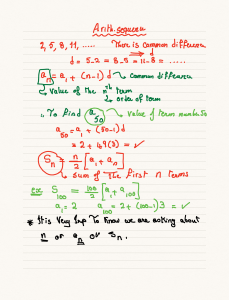 Arith.sequence
2, 5, 8, 11, ..... There is common difference
d = 5-2 = 8-5 = 11-8 = .....
an = a1 + (n-1) d → common difference
value of the nth term
order of term
To find a50 → value of term number 50
a50 = a1 + (50-1)d
= 2 + 49(3) = ✓
Sn = n/2 [a1 + an]
sum of the first n terms
Ex: S100 = 100/2 [a1 + a100]
a1 = 2 a100 = 2 + (100-1)3 = ✓
* It is Very Imp To Know we are asking about
n or an or Sn.